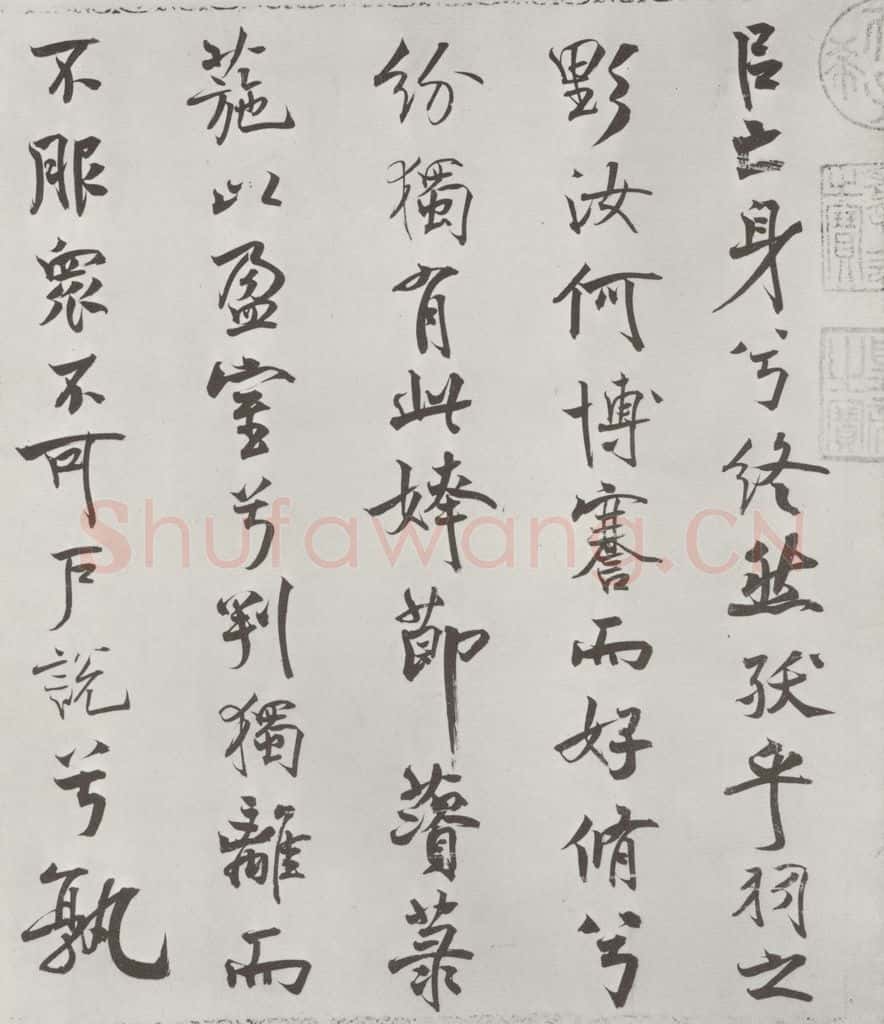 㠯亡身兮終然殀乎羽之
野汝何博謇而好脩兮
紛獨有此姱節薋菉
葹以盈室兮判獨離而
不服衆不可戶說兮孰
Shufawang.CN